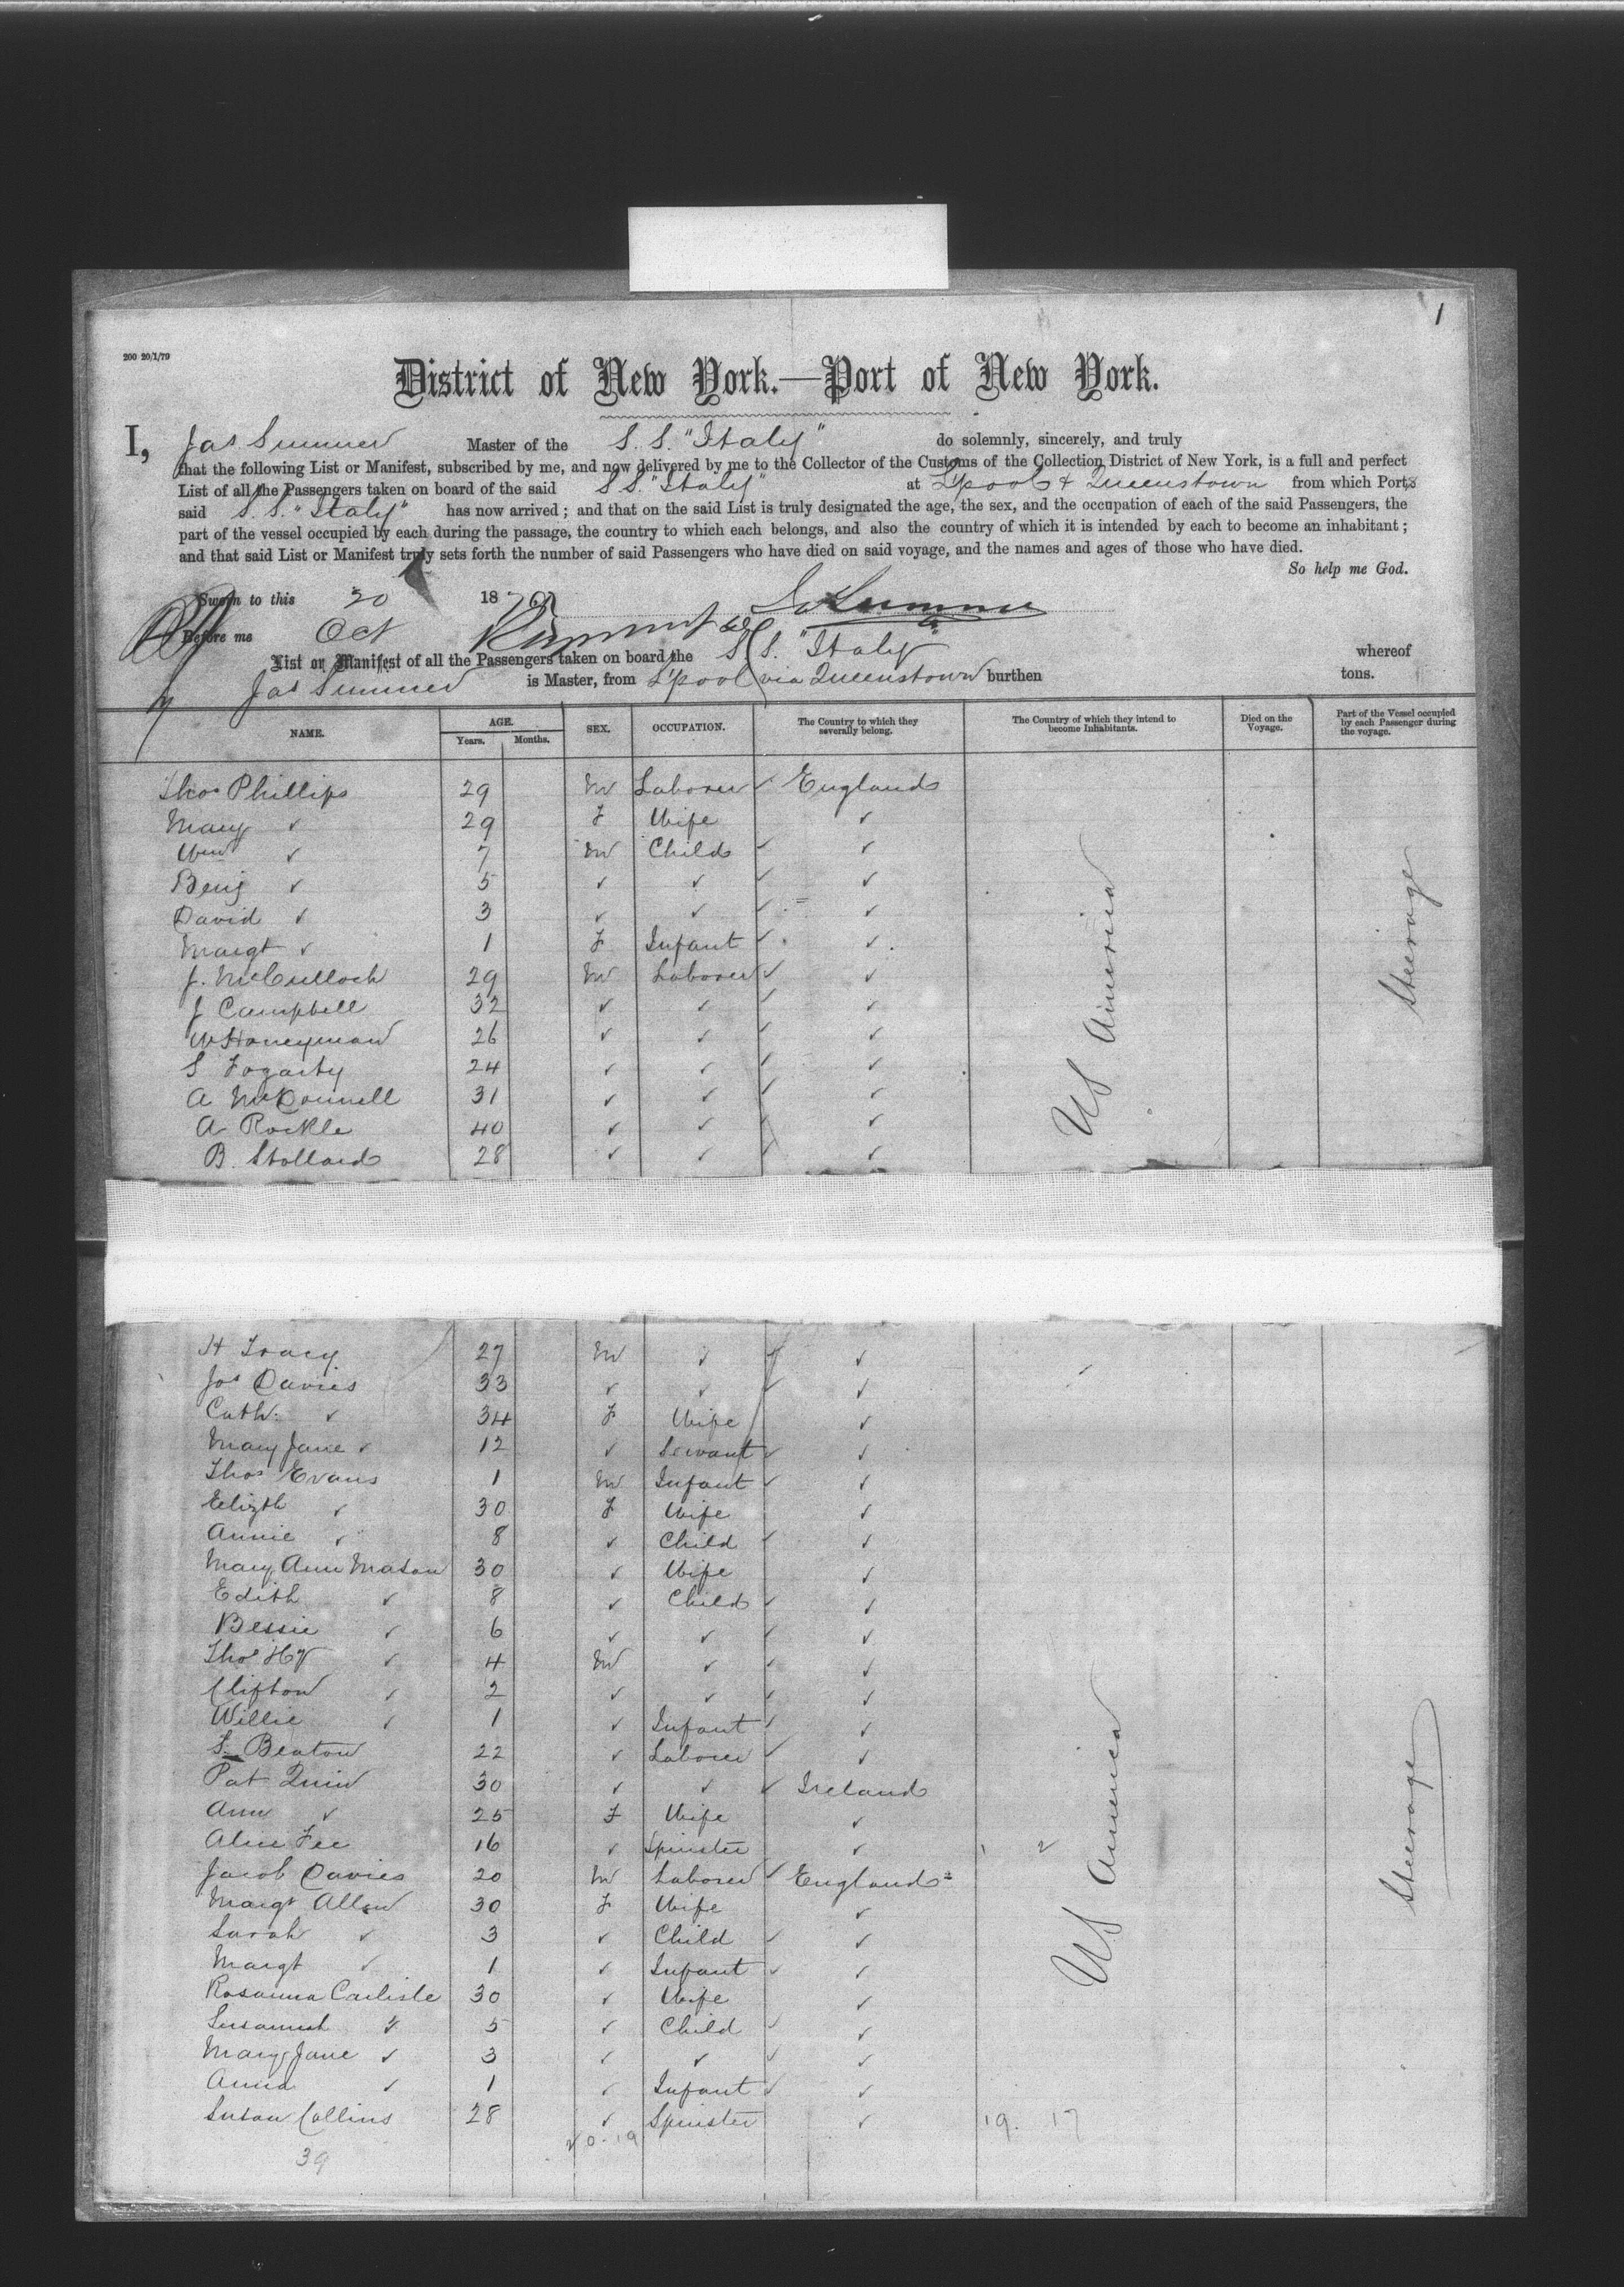 1
200 20/1/79
District of New York.—Port of New York.
I, Jas Sumner Master of the S. S. "Italy" do solemnly, sincerely, and truly
that the following List or Manifest, subscribed by me, and now delivered by me to the Collector of the Customs of the Collection District of New York, is a full and perfect
List of all the Passengers taken on board of the said S S. "Italy" at L'pool & Queenstown from which Ports
said S. S. "Italy" has now arrived ; and that on the said List is truly designated the age, the sex, and the occupation of each of the said Passengers, the
part of the vessel occupied by each during the passage, the country to which each belongs, and also the country of which it is intended by each to become an inhabitant ;
and that said List or Manifest truly sets forth the number of said Passengers who have died on said voyage, and the names and ages of those who have died.
So help me God.
Sworn to this 20 1879
Before me Oct
List or Manifest of all the Passengers taken on board the S. S. "Italy" whereof
Jas Sumner is Master, from L'pool via Queenstown burthen tons.
NAME. AGE. Years. Months. SEX. OCCUPATION. The Country to which they severally belong. The Country of which they intend to become Inhabitants. Died on the Voyage. Part of the Vessel occupied by each Passenger during the voyage.
Thos Phillips 29 M Laborer ✓ England
Mary ✓ 29 F Wife ✓
Wm ✓ 7 M Child ✓ ✓
Benj ✓ 5 ✓ ✓ ✓ ✓
David ✓ 3 ✓ ✓ ✓ ✓
Margt ✓ 1 F Infant ✓ ✓
J. McCulloch 29 M Laborer ✓ ✓
J Campbell 32 ✓ ✓ ✓ ✓
W Honeyman 26 ✓ ✓ ✓ ✓
S Fogarty 24 ✓ ✓ ✓ ✓
A McDonnell 31 ✓ ✓ ✓ ✓
A Rockle 40 ✓ ✓ ✓ ✓
B. Stollard 28 ✓ ✓ ✓ ✓
US America
Steerage
H Tracy 27 M ✓ ✓ ✓
Jos Davies 33 ✓ ✓ ✓ ✓
Cath: ✓ 34 F Wife ✓
Mary Jane ✓ 12 ✓ Servant ✓ ✓
Thos Evans 1 M Infant ✓ ✓
Elizth ✓ 30 F Wife ✓
Annie ✓ 8 ✓ Child ✓ ✓
Mary Ann Mason 30 ✓ Wife ✓
Edith ✓ 8 ✓ Child ✓ ✓
Bessie ✓ 6 ✓ ✓ ✓ ✓
Thos Hy ✓ 4 M ✓ ✓ ✓
Clifton ✓ 2 ✓ ✓ ✓ ✓
Willie ✓ 1 ✓ Infant ✓ ✓
S. Beaton 22 ✓ Laborer ✓ ✓
Pat Quin 30 ✓ ✓ ✓ Ireland
Ann ✓ 25 F Wife ✓
Alice Fee 16 ✓ Spinster ✓ 1 2
Jacob Davies 20 M Laborer ✓ England
Margt Allen 30 F Wife ✓
Sarah ✓ 3 ✓ Child ✓ ✓
Margt ✓ 1 ✓ Infant ✓ ✓
Rosanna Carlisle 30 ✓ Wife ✓
Susannah ✓ 5 ✓ Child ✓ ✓
Mary Jane ✓ 3 ✓ ✓ ✓ ✓
Anna ✓ 1 ✓ Infant ✓ ✓
Susan Collins 28 ✓ Spinster ✓ 19. 17
US America
Steerage
20-19
39